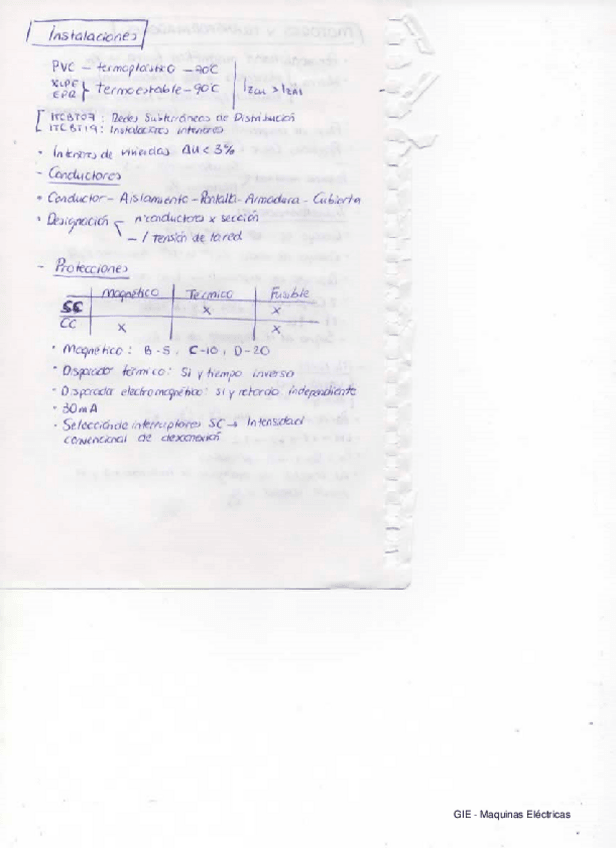 Instalaciones
PVC - termoplástico - 70ºC
XLPE
EPR } termoestable - 90ºC | IzCu > IzAl
ITCBT07: Redes Subterráneas de Distribución
ITCBT19: Instalaciones interiores
• Interiores de viviendas ΔU < 3%
- Conductores
• Conductor - Aislamiento - Pantalla - Armadura - Cubierta
• Designación - nºconductores x sección
- / Tensión de la red
- Protecciones
Magnético | Térmico | Fusible
SC | | X | X
CC | X | | X
• Magnético: B-5, C-10, D-20
• Disparador térmico: Si y tiempo inverso
- Disparador electromagnético: si y retardo independiente
• 30mA
• Selección de interruptores SC → Intensidad
convencional de desconexión
GIE - Maquinas Eléctricas